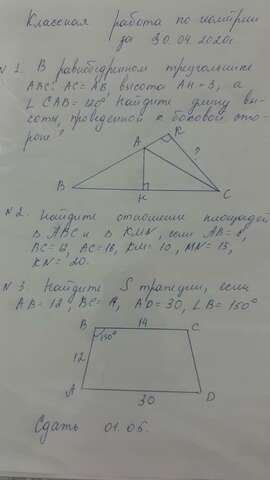 Классная работа по геометрии
за 30.04.2020г
N 1. В равнобедренном треугольнике
ABC: AC = AB высота AH = 3, а
∠ CAB = 120°. Найдите длину вы-
соты, проведенной к боковой сто-
роне?
A
R
?
B
H
C
N 2. Найдите отношение площадей
∆ ABC и ∆ KMN, если AB = 8,
BC = 12, AC = 16, KM = 10, MN = 15,
KN = 20.
N 3. Найдите S трапеции, если
AB = 12, BC = 14, AD = 30, ∠B = 150°
B 14 C
150°
12
A 30 D
Сдать 01.05.